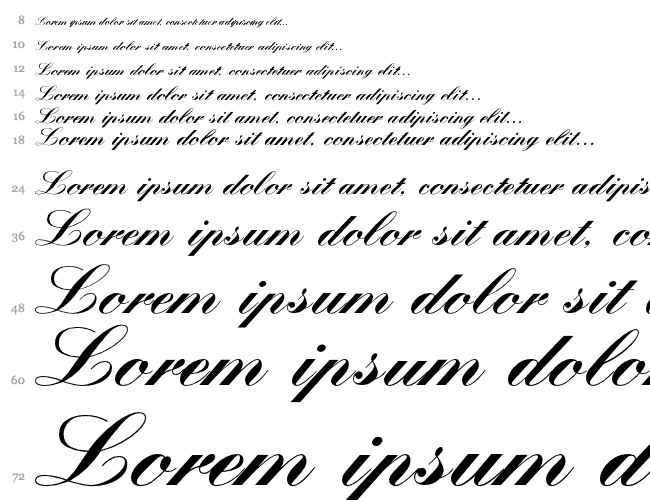 8 Lorem ipsum dolor sit amet, consectetuer adipiscing elit...
10 Lorem ipsum dolor sit amet, consectetuer adipiscing elit...
12 Lorem ipsum dolor sit amet, consectetuer adipiscing elit...
14 Lorem ipsum dolor sit amet, consectetuer adipiscing elit...
16 Lorem ipsum dolor sit amet, consectetuer adipiscing elit...
18 Lorem ipsum dolor sit amet, consectetuer adipiscing elit...
24 Lorem ipsum dolor sit amet, consectetuer adipis
36 Lorem ipsum dolor sit amet, co
48 Lorem ipsum dolor sit
60 Lorem ipsum dolo
72 Lorem ipsum d